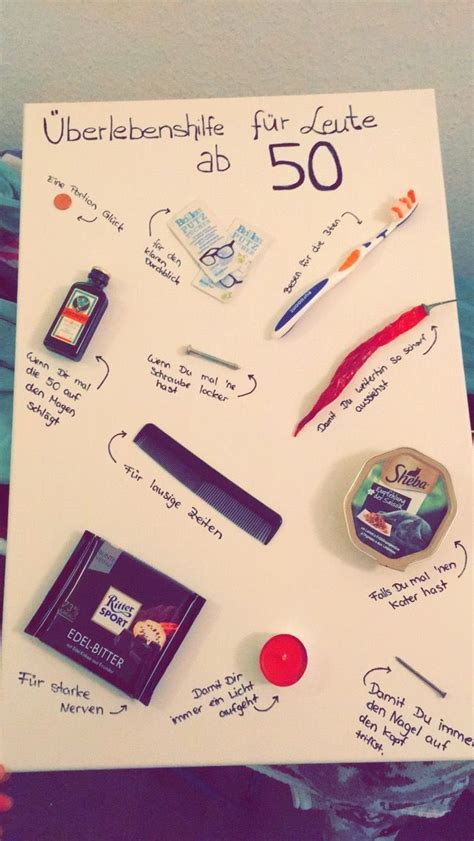 Überlebenshilfe für Leute
ab 50
Eine Portion Glück
für den
klaren
Durchblick
Brillen
PUTZ
Besen für die 3ten
Wenn Dir mal
die 50 auf
den Magen
schlägt
Wenn Du mal 'ne
Schraube locker
hast
Damit Du weiterhin so scharf
aussiehst
Für lausige Zeiten
Sheba
Falls Du mal 'nen
Kater hast
Ritter
SPORT
EDEL-BITTER
73%
Für starke
Nerven
Damit Dir
immer ein Licht
aufgeht
Damit Du immer
den Nagel auf
den Kopf
triffst.